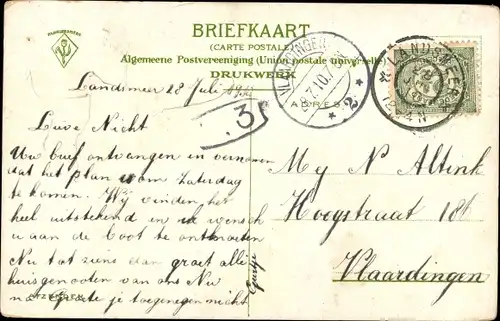 BRIEFKAART
(CARTE POSTALE)
Algemeene Postvereeniging (Union postale universelle)
DRUKWERK
ADRES
VLAARDINGEN
28.7.10.
* 2 *
LANDSMEER
12 - 4 N
3
Landsmeer 28 Juli
Lieve Nicht
Uw brief ontvangen en vernomen
dat het plan is om Zaterdag
te komen. Wij vinden het
heel uitstekend en wensch
u aan de boot te ontmoeten
Nu tot ziens dan groet alle
huisgenooten van ons Nu
groete je toegenegen nicht
Geertje
Mej N Altink
Hoogstraat 186
Vlaardingen